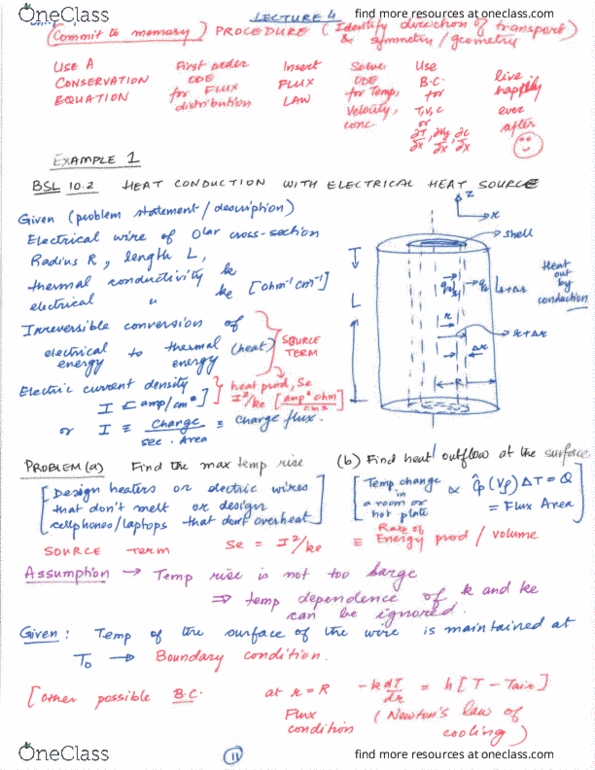 OneClass
find more resources at oneclass.com
LECTURE 4
(Commit to memory) PROCEDURE (Identify direction of transport)
& symmetry/geometry
USE A First order Insert Solve Use
CONSERVATION ODE FLUX ODE B.C. live
EQUATION for FLUX LAW for Temp, for happily
distribution Velocity, T,v,c ever
conc. or after
∂T/∂x, ∂vy/∂x, ∂c/∂x
EXAMPLE 1
BSL 10.2 HEAT CONDUCTION WITH ELECTRICAL HEAT SOURCE
Given (problem statement/description)
Electrical wire of Olar cross-section
Radius R, length L,
thermal conductivity k
electrical " ke [ohm⁻¹cm⁻¹]
Irreversible conversion of
electrical energy to thermal energy (heat) } SOURCE TERM
Electric current density } heat prod, Se
I [amp/cm²] I²/ke [amp² ohm/cm²]
or I ≡ Charge/sec. Area ≡ Charge flux.
z
r
shell
L
r
r+Δr
Δr
R
Heat
out
by
conduction
PROBLEM (a) Find the max temp rise (b) Find heat outflow at the surface
[Design heaters or electric wires
that don't melt or design
cellphones/laptops that don't overheat]
[Temp change in a room or hot plate ∝ Ĉp (Vρ) ΔT = Q
= Flux Area]
SOURCE TERM Se = I²/ke ≡ Rate of Energy prod / volume
Assumption → Temp rise is not too large
⇒ temp dependence of k and ke
can be ignored.
Given: Temp of the surface of the wire is maintained at
T₀ → Boundary condition.
[other possible B.C. at r=R -k dT/dr = h[T - Tair]
Flux (Newton's law of
condition cooling)
OneClass
11
find more resources at oneclass.com